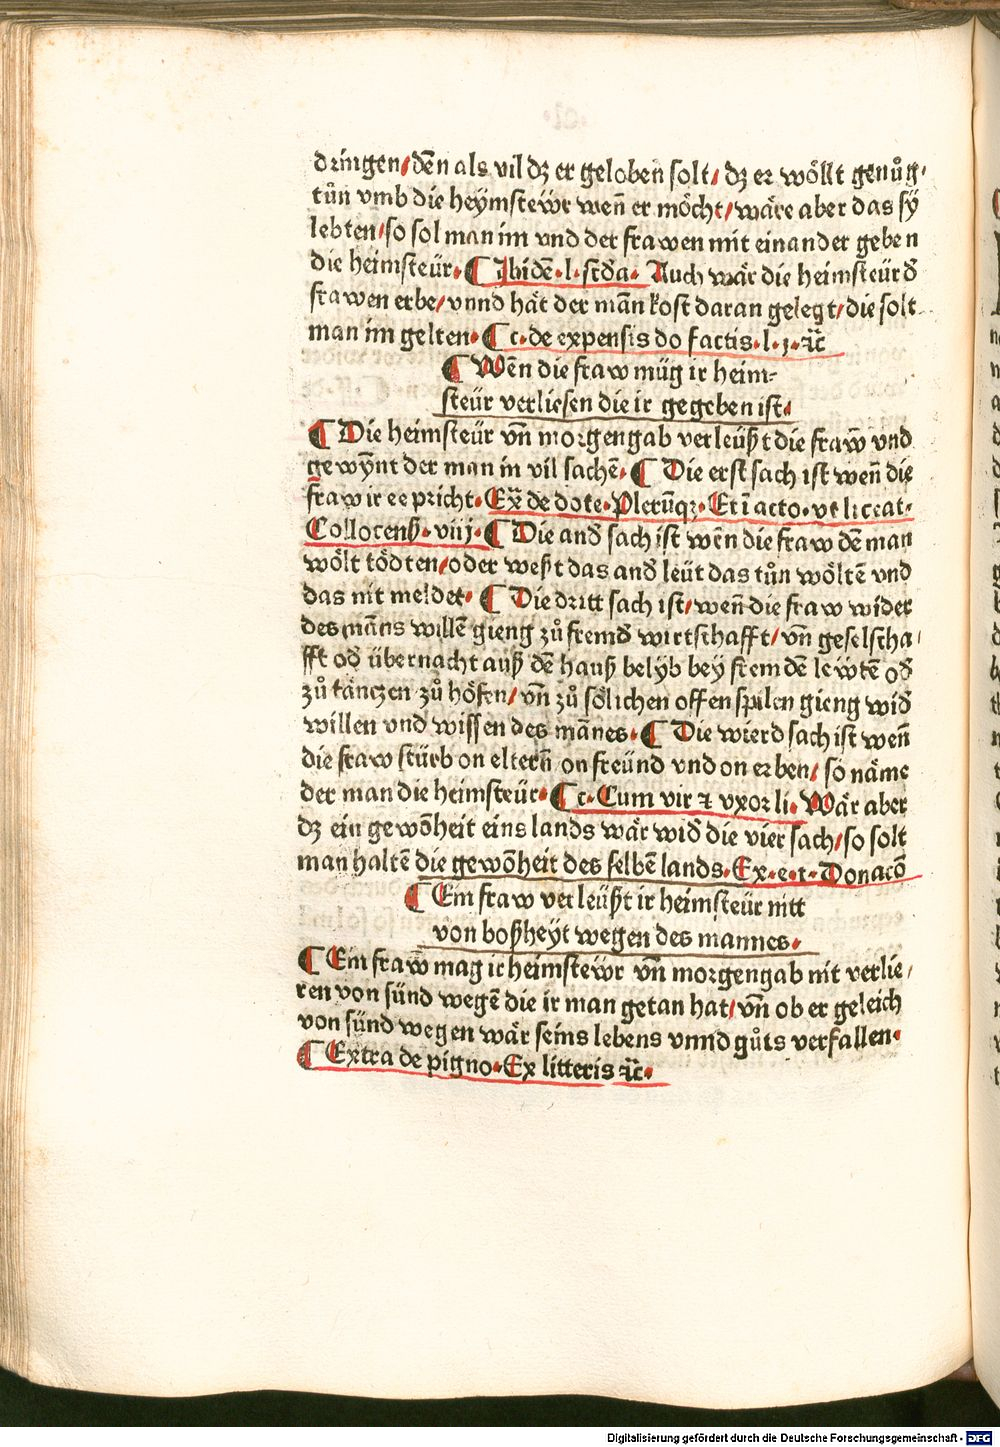 dringen/ dēn als vil dz er geloben solt/ dz er wöllt genůg/
tůn vmb die heÿmsteẅr weñ er möcht/ wäre aber das sÿ
lebten/ so sol man im vnd der frawen mit einander geben
die heimsteür. ¶ Ibidē. l. scďa. Auch wär die heimsteür ď
frawen erbe/ vnnd hät der mān kost daran gelegt/ die solt
man im gelten. ¶ c. de expensis do factis. l. j. ⁊c̄
¶ Wēn die fraw müg ir heim-
steür verliesen die ir gegeben ist.
¶ Die heimsteür vn̄ morgengab verleüßt die fraw̄ vnd
gewȳnt der man in vil sachē. ¶ Die erst sach ist wen̄ die
fraw ir ee pricht. Ex̄ de dote. Plerūqꝫ. Et ī acto. vt liceat.
Collocenß. viij. ¶ Die anď sach ist wēn die fraw dē man
wölt tödten/ oder weßt das anď leüt das tůn wöltē vnd
das nit meldet. ¶ Die dritt sach ist/ wen̄ die fraw wider
des māns willē gieng zů fremď wirtschafft/ vn̄ geselscha/
fft oď übernacht auß dē hauß belyb bey fremdē lewtē oď
zů täntzen zů höfen/ vn̄ zů sölichen offen spilen gieng wiď
willen vnd wissen des mānes. ¶ Die wierd sach ist wen̄
die fraw stürb on eltern̄ on freünd vnd on erben/ so näme
der man die heimsteür. ¶ c. Cum vir ⁊ vxor li. Wär aber
dz ein gewōheit eins lands wär wiď die vier sach/ so solt
man haltē die gewōheit des selbē lands. Ex. e. t. Donacō
¶ Ein fraw verleüßt ir heimsteür nitt
von boßheÿt wegen des mannes.
¶ Ein fraw mag ir heimsteẅr vn̄ morgengab nit verlie/
ren von sünd wegē die ir man getan hat/ vn̄ ob er geleich
von sünd wegen wär seins lebens vnnd gůts verfallen.
¶ Extra de pigno. Ex litteris ⁊c̄.
Digitalisierung gefördert durch die Deutsche Forschungsgemeinschaft - DFG